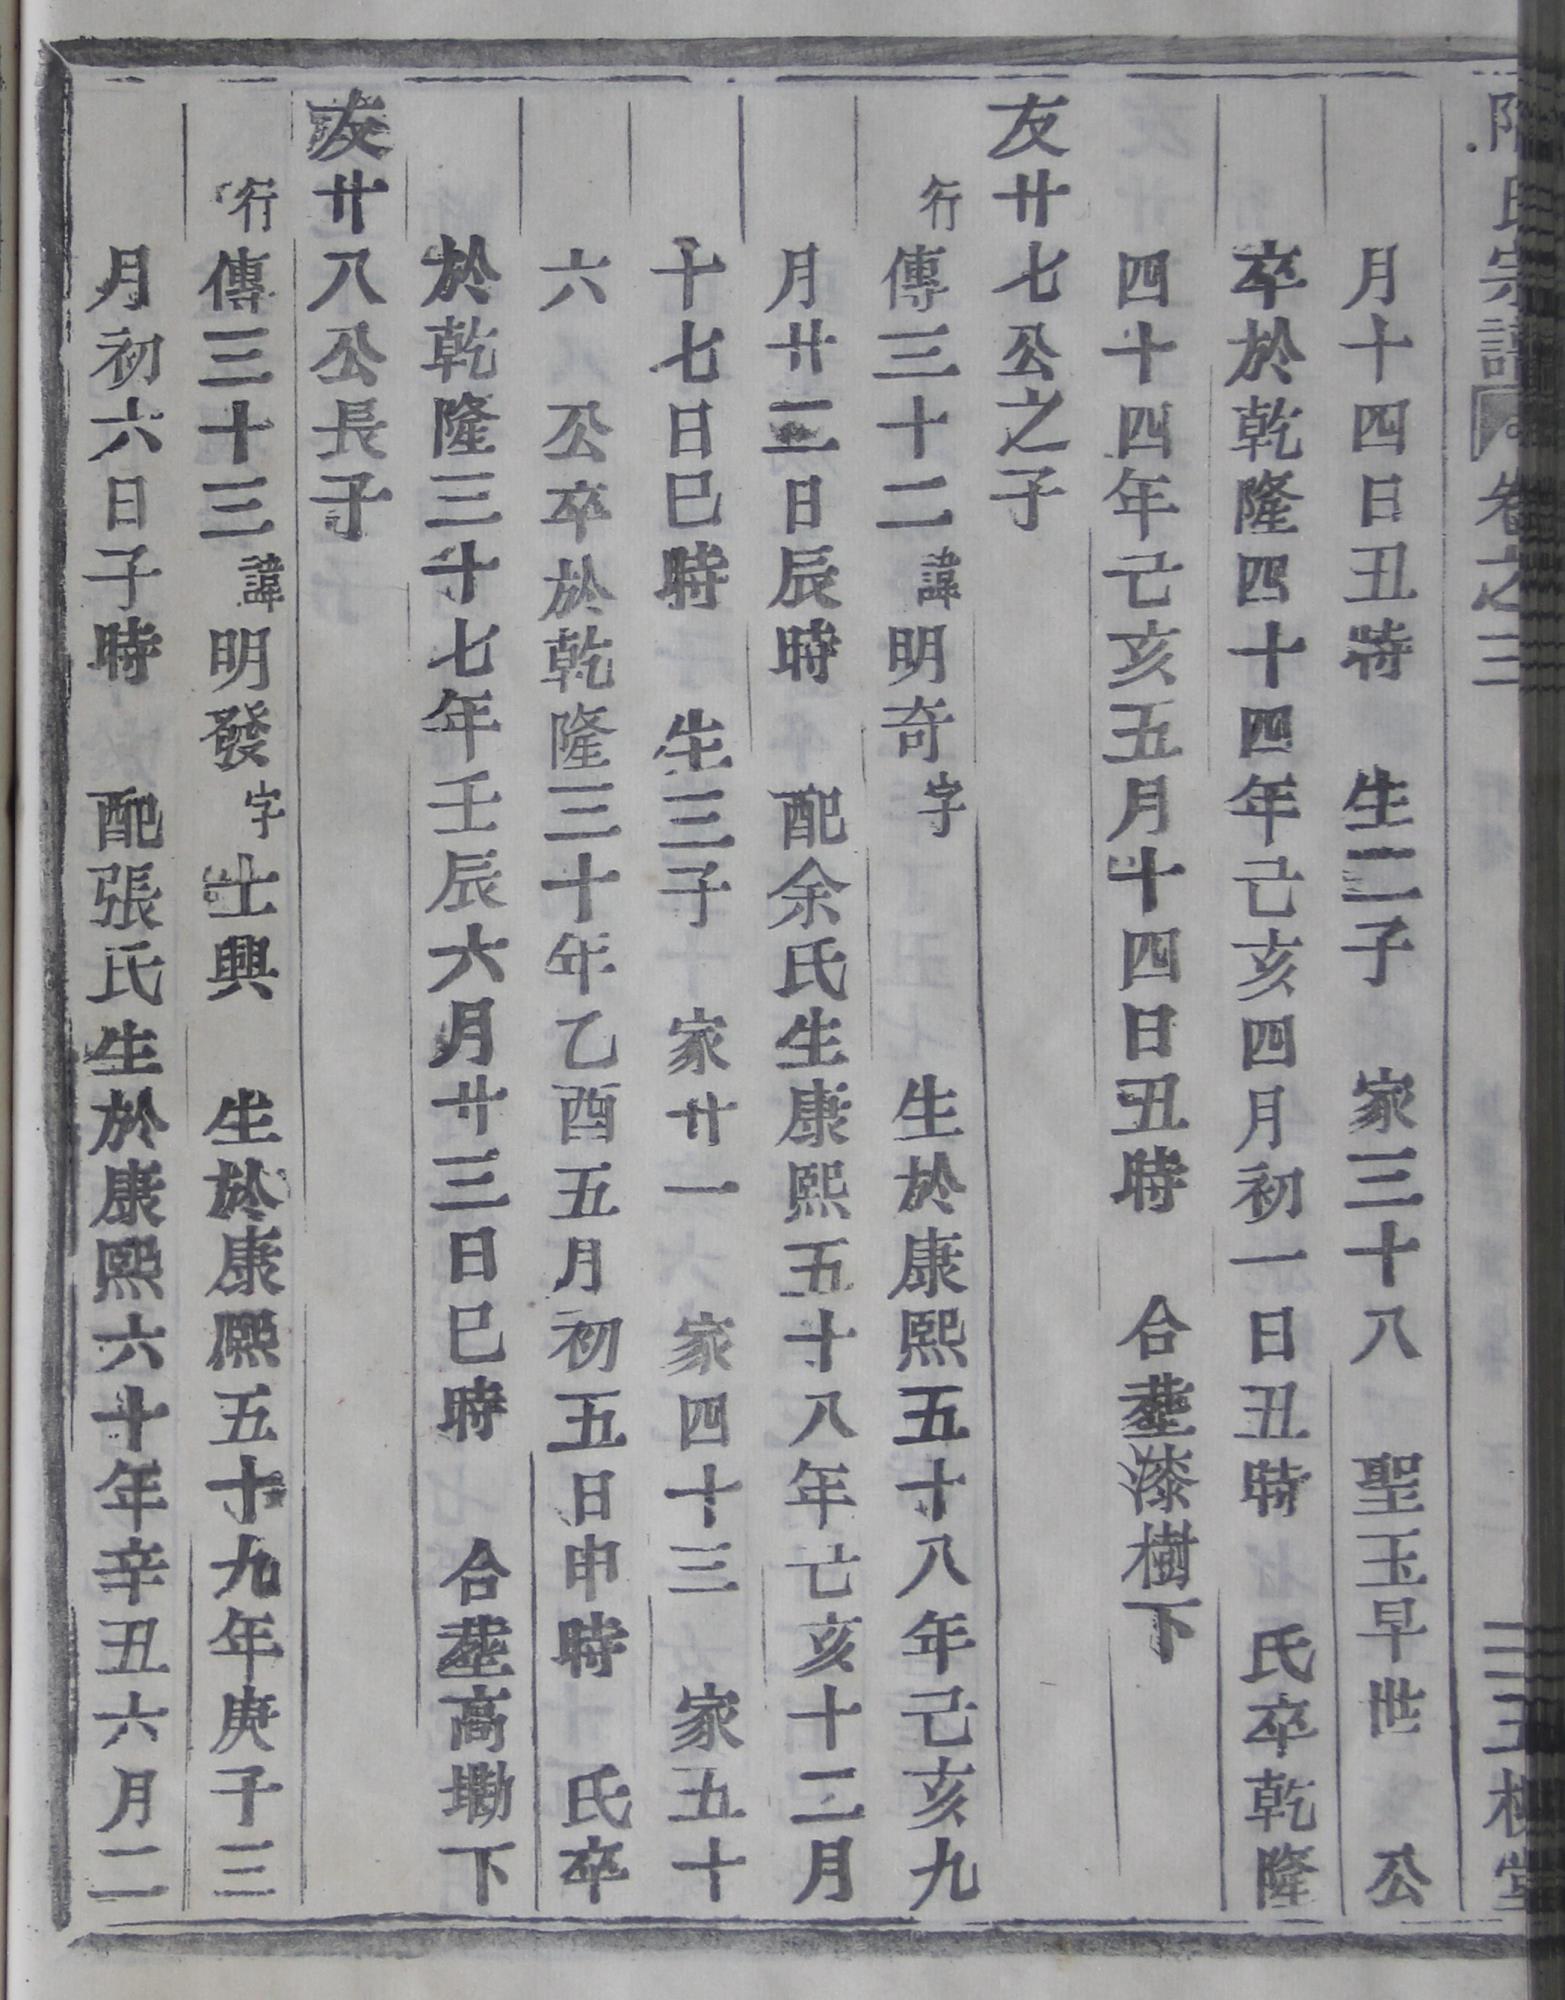 氏宗譜 卷之三 三 堂
月十四日丑時 生二子 家三十八 聖玉早世 公
卒於乾隆四十四年己亥四月初一日丑時 氏卒乾隆
四十四年己亥五月十四日丑時 合塟漆樹下
友廿七公之子
行傳三十二諱明奇字 生於康熙五十八年己亥九
月廿三日辰時 配余氏生康熙五十八年亡亥十二月
十七日巳時 生三子 家廿一 家四十三 家五十
六 公卒於乾隆三十年乙酉五月初五日申時 氏卒
於乾隆三十七年壬辰六月廿三日巳時 合塟高墈下
友廿八公長子
行傳三十三諱明發字士興 生於康熙五十九年庚子三
月初六日子時 配張氏生於康熙六十年辛丑六月二